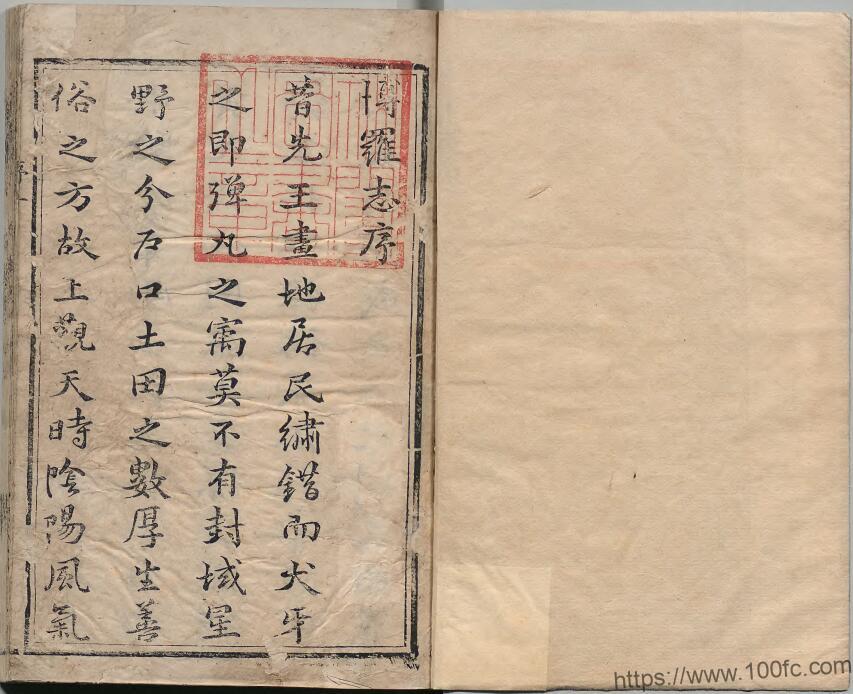 博羅志序
昔先王畫地居民繡錯而犬牙
之即弹丸之寓莫不有封域星
野之分户口土田之數厚生善
俗之方故上觀天時陰陽風氣
序
https://www.100fc.com